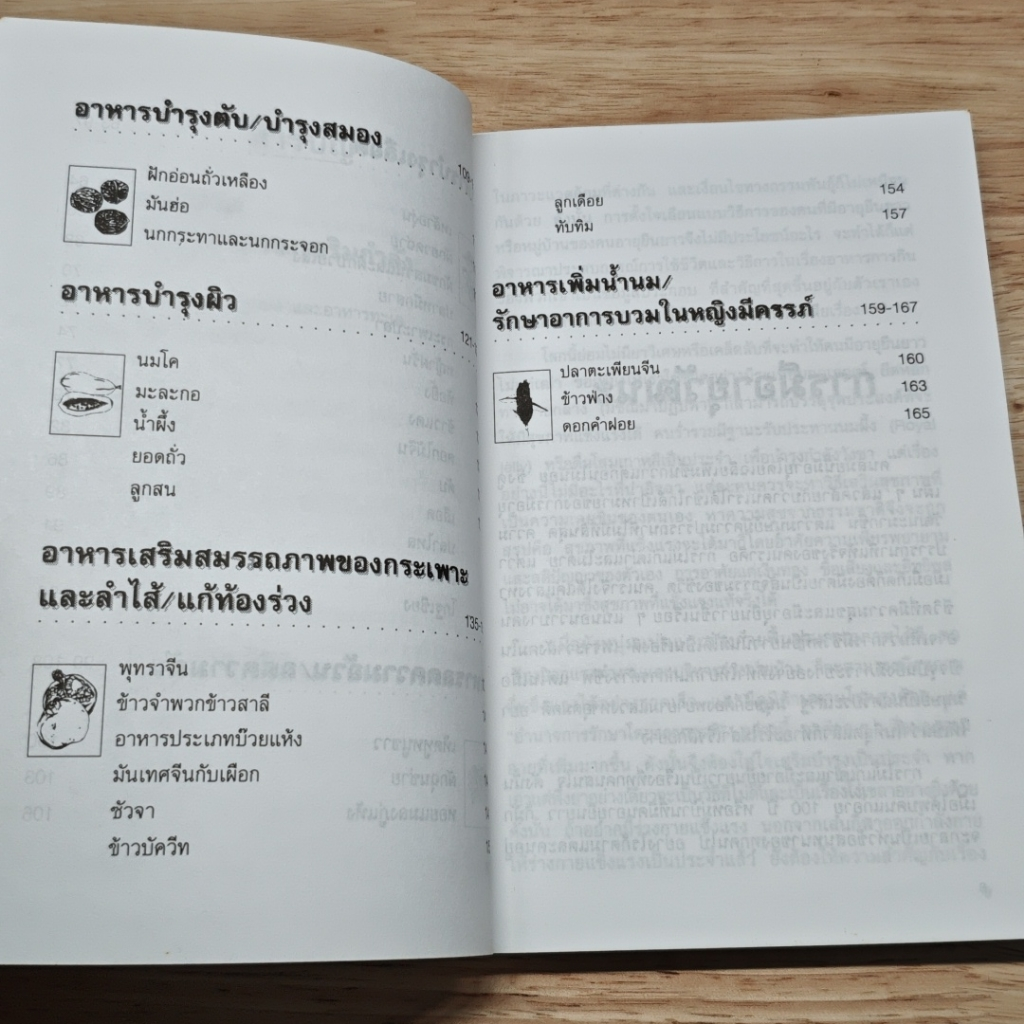 อาหารบำรุงตับ/บำรุงสมอง
ฝักอ่อนถั่วเหลือง
มันฮ่อ
นกกระทาและนกกระจอก
อาหารบำรุงผิว
นมโค
มะละกอ
น้ำผึ้ง
ยอดถั่ว
ลูกสน
อาหารเสริมสมรรถภาพของกระเพาะ
และลำไส้/แก้ท้องร่วง
พุทราจีน
ข้าวจำพวกข้าวสาลี
อาหารประเภทบ๊วยแห้ง
มันเทศจีนกับเผือก
ชัวจา
ข้าวบัควีท
ลูกเดือย 154
ทับทิม 157
อาหารเพิ่มน้ำนม/
รักษาอาการบวมในหญิงมีครรภ์ 159-167
ปลาตะเพียนจีน 160
ข้าวฟ่าง 163
ดอกคำฝอย 165